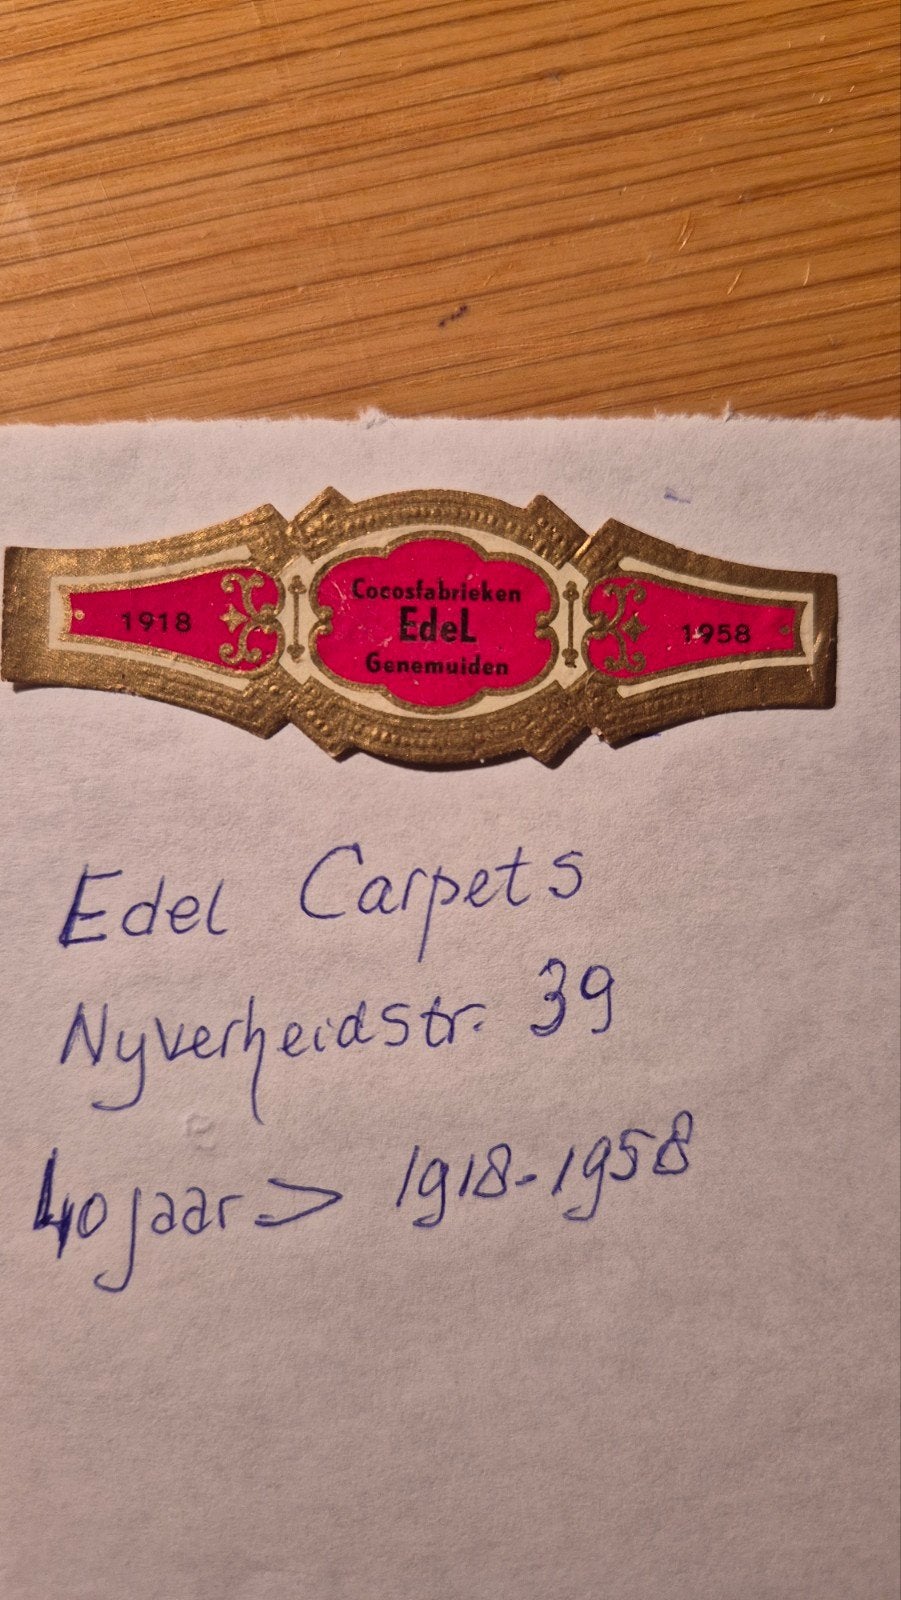 1918
Cocosfabrieken
EdeL
Genemuiden
1958
Edel Carpets
Nyverheidstr. 39
40 jaar => 1918-1958